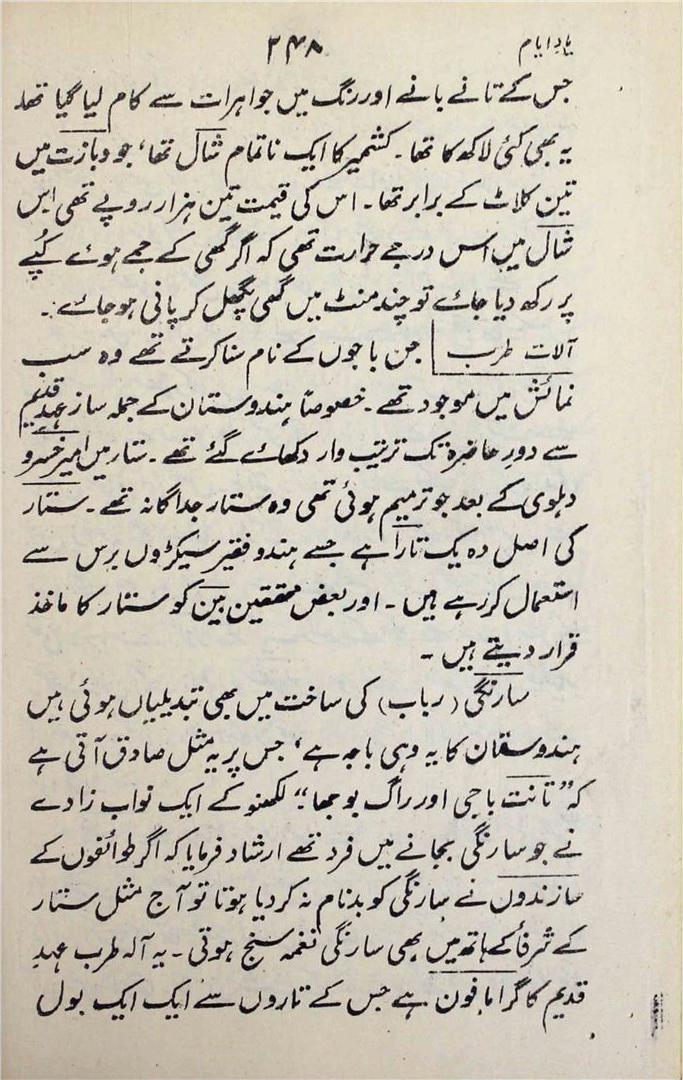 یادِ ایام ۲۴۸
جس کے تانے بانے اور رنگ میں جواہرات سے کام لیا گیا تھا۔
یہ بھی کئی لاکھ کا تھا۔ کشمیر کا ایک ناتمام شال تھا، جو دبازت میں
تین کلاٹ کے برابر تھا۔ اس کی قیمت تین ہزار روپے تھی اس
شال میں اس درجے حرارت تھی کہ اگر گھی کے جمے ہوئے کُپے
پر رکھ دیا جائے تو چند منٹ میں گھی پگھل کر پانی ہو جائے۔
آلات طرب جن باجوں کے نام سنا کرتے تھے وہ سب
نمائش میں موجود تھے۔ خصوصاً ہندوستان کے جملہ ساز عہدِ قدیم
سے دورِ حاضرہ تک ترتیب وار دکھائے گئے تھے۔ ستار میں امیر خسرو
دہلوی کے بعد جو ترمیم ہوئی تھی وہ ستار جداگانہ تھے۔ ستار
کی اصل دہ یک تارا ہے جسے ہندو فقیر سیکڑوں برس سے
استعمال کر رہے ہیں۔ اور بعض محققین بین کو ستار کا ماخذ
قرار دیتے ہیں۔
سارنگی (رباب) کی ساخت میں بھی تبدیلیاں ہوئی ہیں
ہندوستان کا یہ وہی باجہ ہے، جس پر یہ مثل صادق آتی ہے
کہ ”تانت باجی اور راگ بوجھا“ لکھنو کے ایک نواب زادے
نے جو سارنگی بجانے میں فرد تھے ارشاد فرمایا کہ اگر طوائفوں کے
سازندوں نے سارنگی کو بدنام نہ کر دیا ہوتا تو آج مثل ستار
کے شرفأ کے ہاتھ میں بھی سارنگی نغمہ سنج ہوتی۔ یہ آلہ طرب عہدِ
قدیم کا گراما فون ہے جس کے تاروں سے ایک ایک بول